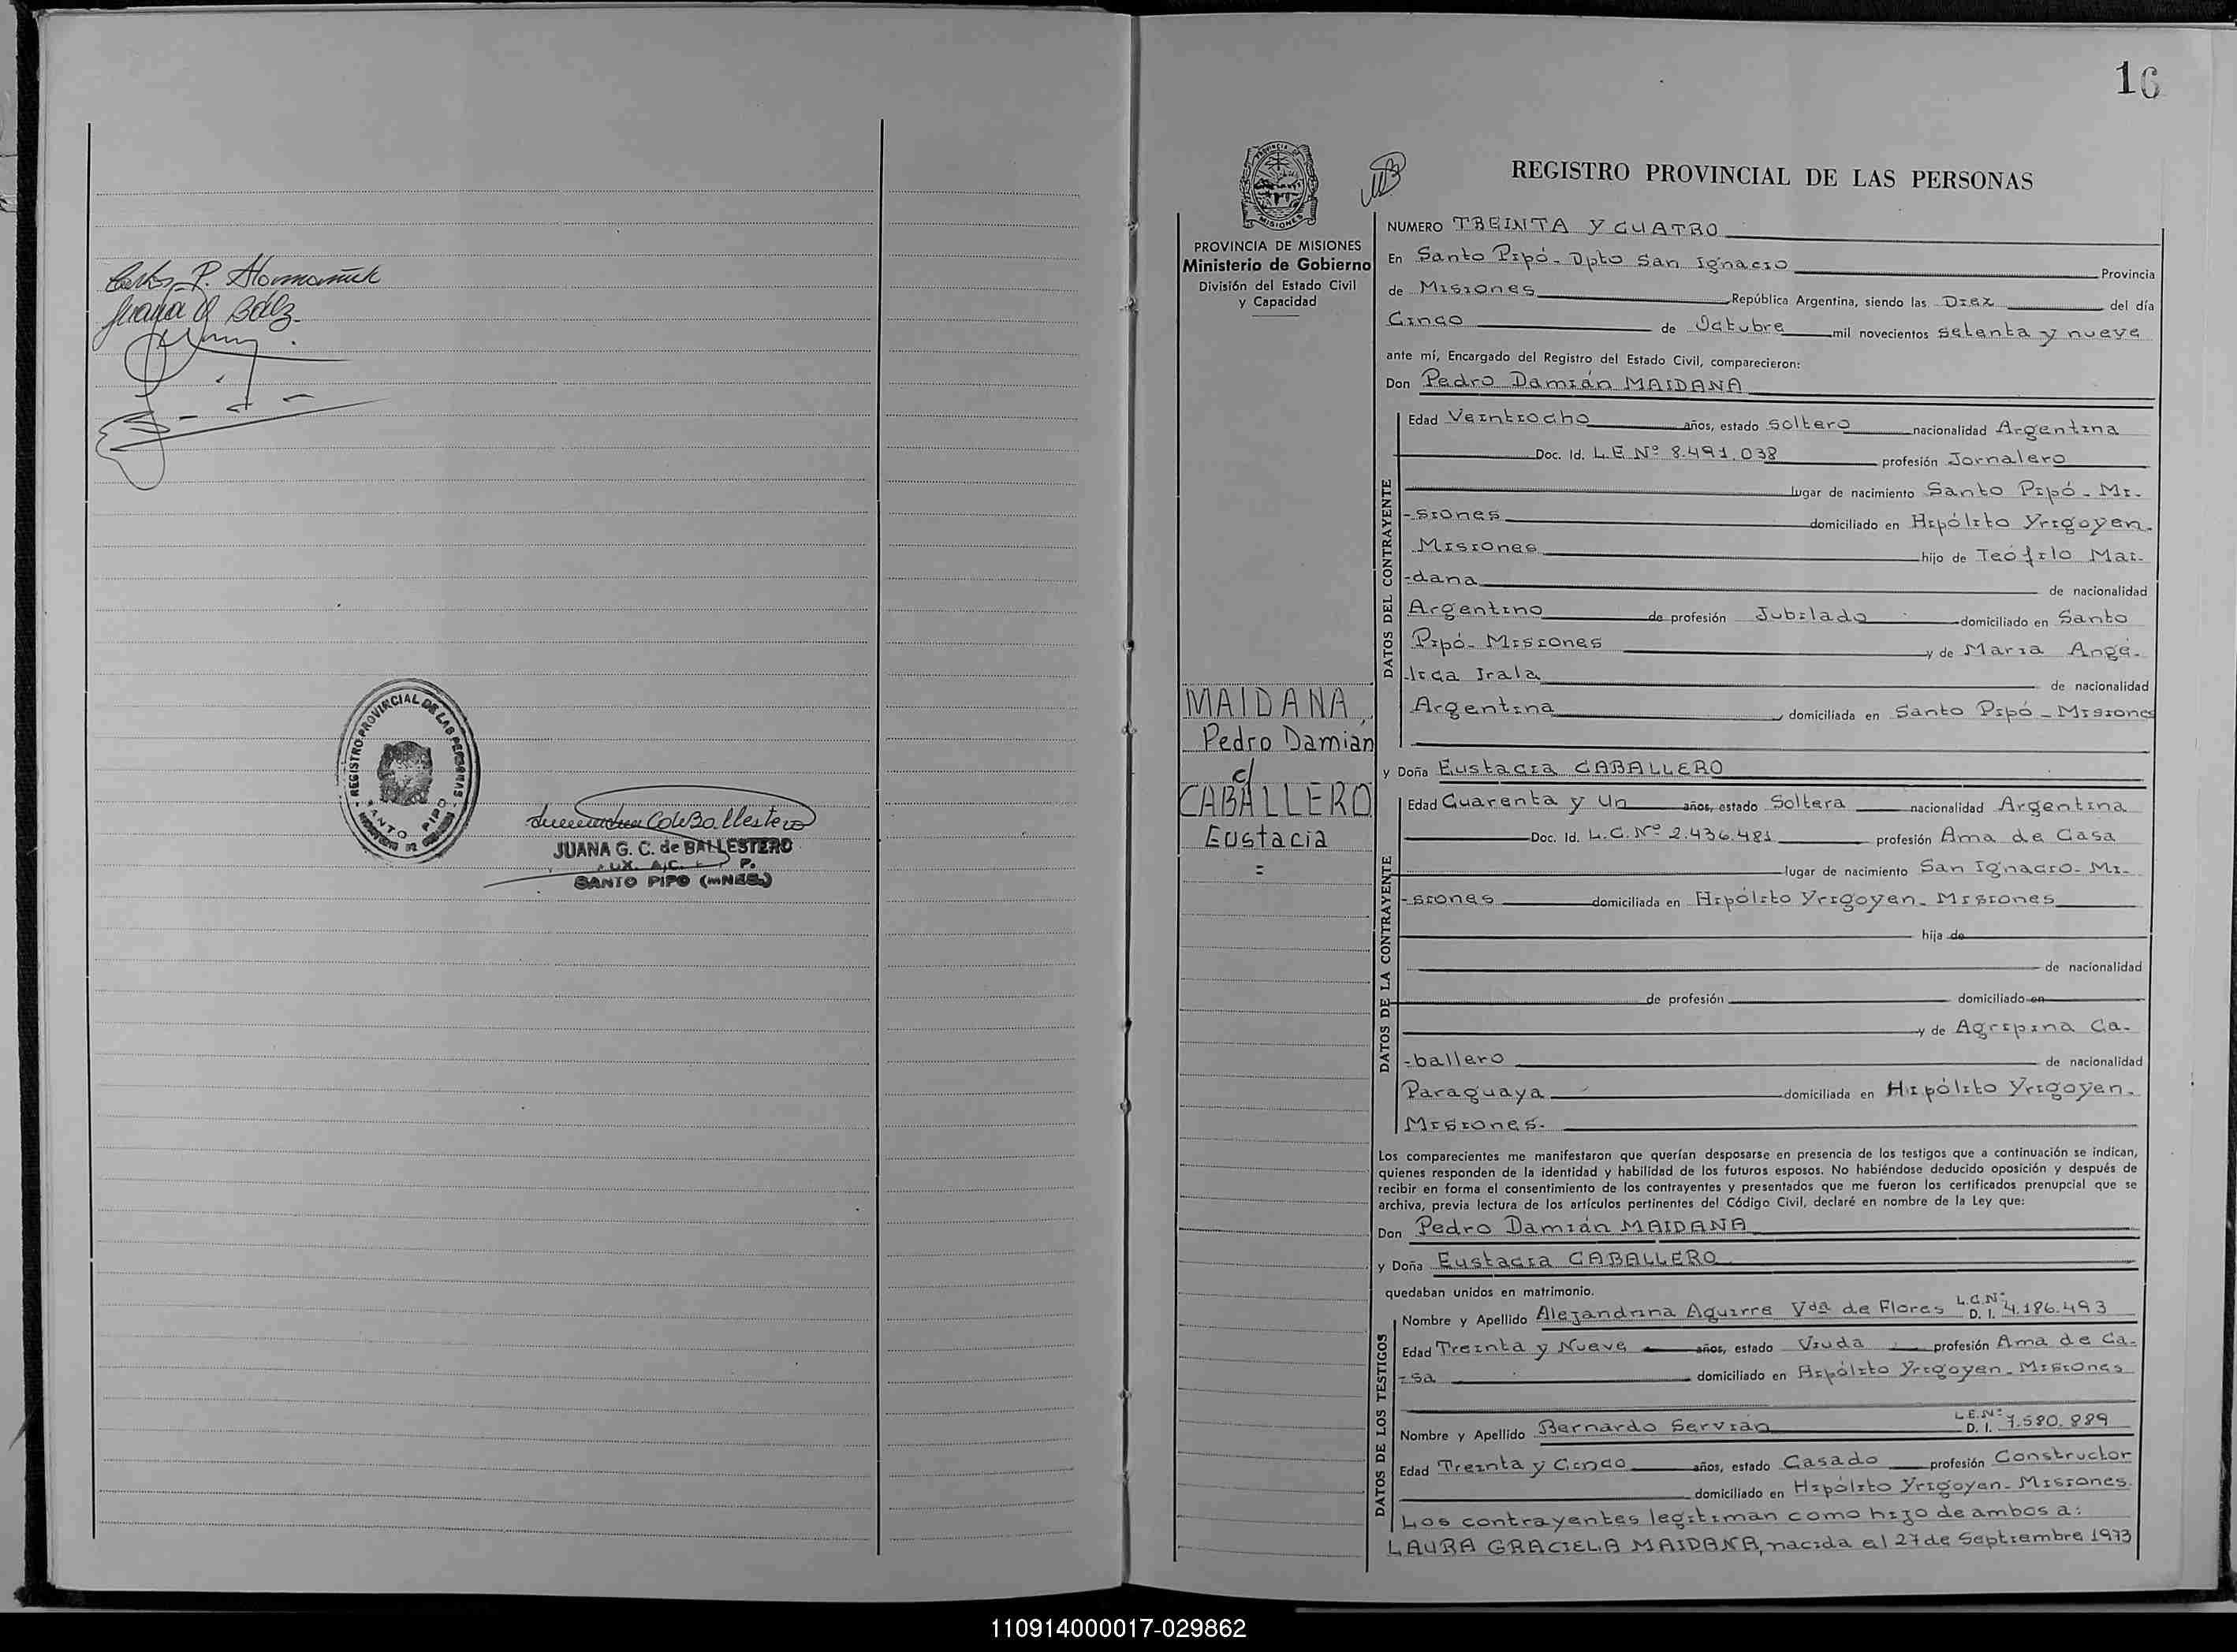 Juana G. Báez
REGISTRO PROVINCIAL DE LAS PERSONAS
SANTO PIPO
JUANA G. C. de BALLESTERO
SANTO PIPO (MNES.)
16
PROVINCIA DE MISIONES
Ministerio de Gobierno
División del Estado Civil
y Capacidad
MAIDANA,
Pedro Damian
c/
CABALLERO
Eustacia
=
REGISTRO PROVINCIAL DE LAS PERSONAS
NUMERO TREINTA Y CUATRO
En Santo Pipó - Dpto San Ignacio Provincia
de Misiones República Argentina, siendo las Diez del día
Cinco de Octubre mil novecientos setenta y nueve
ante mí, Encargado del Registro del Estado Civil, comparecieron:
Don Pedro Damián MAIDANA
DATOS DEL CONTRAYENTE
Edad Veintiocho años, estado soltero nacionalidad Argentina
Doc. Id. L.E Nº 8.491.038 profesión Jornalero
lugar de nacimiento Santo Pipó - Mi-
-siones domiciliado en Hipólito Yrigoyen-
Misiones hijo de Teófilo Mai-
-dana de nacionalidad
Argentino de profesión Jubilado domiciliado en Santo
Pipó- Misiones y de Maria Angé-
-lica Irala de nacionalidad
Argentina domiciliada en Santo Pipó - Misiones
y Doña Eustacia CABALLERO
DATOS DE LA CONTRAYENTE
Edad Cuarenta y Un años, estado Soltera nacionalidad Argentina
Doc. Id. L.C. Nº 2.436.481 profesión Ama de Casa
lugar de nacimiento San Ignacio- Mi-
-siones domiciliada en Hipólito Yrigoyen- Misiones
hija de
de nacionalidad
de profesión domiciliado en
y de Agripina Ca-
-ballero de nacionalidad
Paraguaya domiciliada en Hipólito Yrigoyen-
Misiones.
Los comparecientes me manifestaron que querían desposarse en presencia de los testigos que a continuación se indican,
quienes responden de la identidad y habilidad de los futuros esposos. No habiéndose deducido oposición y después de
recibir en forma el consentimiento de los contrayentes y presentados que me fueron los certificados prenupcial que se
archiva, previa lectura de los artículos pertinentes del Código Civil, declaré en nombre de la Ley que:
Don Pedro Damián MAIDANA
y Doña Eustacia CABALLERO
quedaban unidos en matrimonio.
DATOS DE LOS TESTIGOS
Nombre y Apellido Alejandrina Aguirre Vda de Flores L.C.Nº D. I. 4.186.493
Edad Treinta y Nueve años, estado Viuda profesión Ama de Ca-
-sa domiciliado en Hipólito Yrigoyen- Misiones
Nombre y Apellido Bernardo Servián L.E.Nº D. I. 7.580.889
Edad Treinta y Cinco años, estado Casado profesión Constructor
domiciliado en Hipólito Yrigoyen- Misiones.
Los contrayentes legitiman como hijo de ambos a:
LAURA GRACIELA MAIDANA, nacida el 27 de Septiembre 1973
110914000017-029862